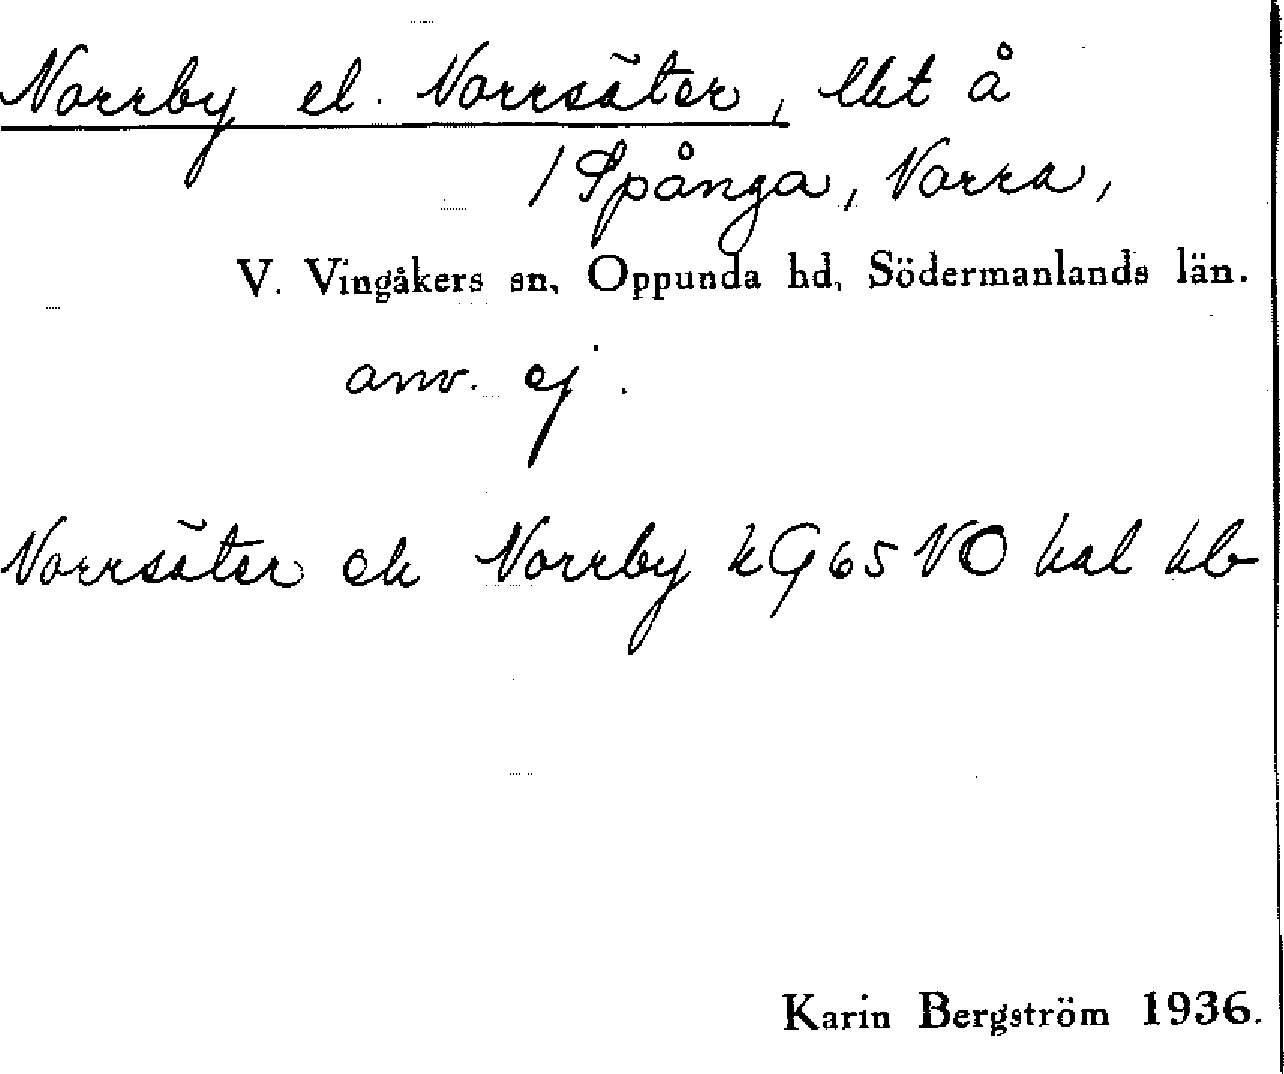 Norrby el. Norrsäter, lht å
/ Spånga, Norra,
V. Vingåkers sn, Oppunda hd, Södermanlands län.
anv. ej.
Norrsäter ch Norrby kG65NO hal hb
Karin Bergström 1936.